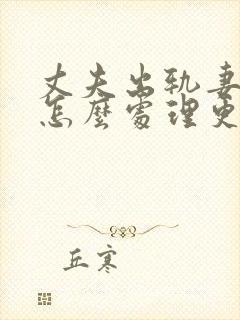 丈夫出轨妻
怎麼處理更
丘寒